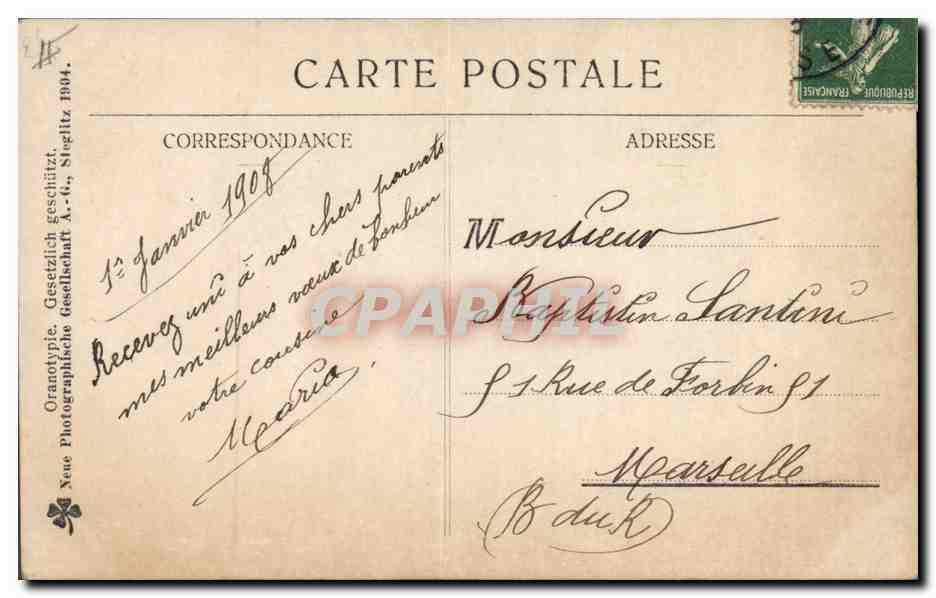 CARTE POSTALE
CORRESPONDANCE
ADRESSE
1er Janvier 1908
Recevez uni à vos chers parents
mes meilleurs vœux de bonheur
votre cousine
Maria
Monsieur
Baptistin Santini
51 Rue de Forbin 51
Marseille
(B du R)
Oranotypie. Gesetzlich geschützt.
Neue Photographische Gesellschaft A.-G., Steglitz 1904.
REPUBLIQUE
FRANÇAISE
CPAPHIL